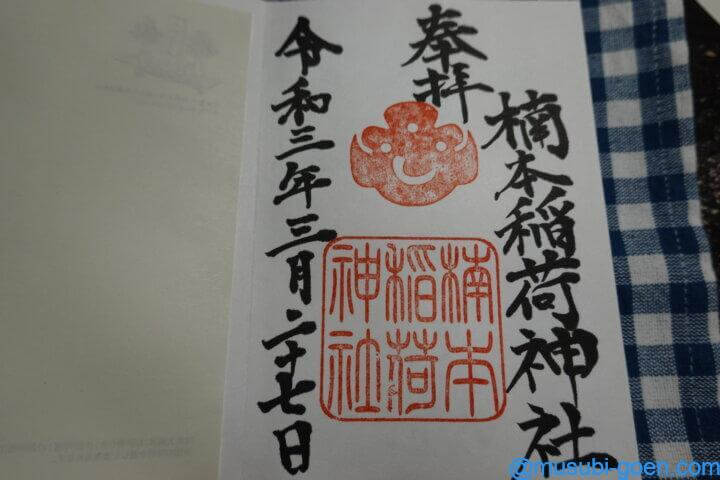 楠本稲荷神社
奉拝
令和三年三月二十七日
楠本
稲荷
神社
@musubi-goen.com